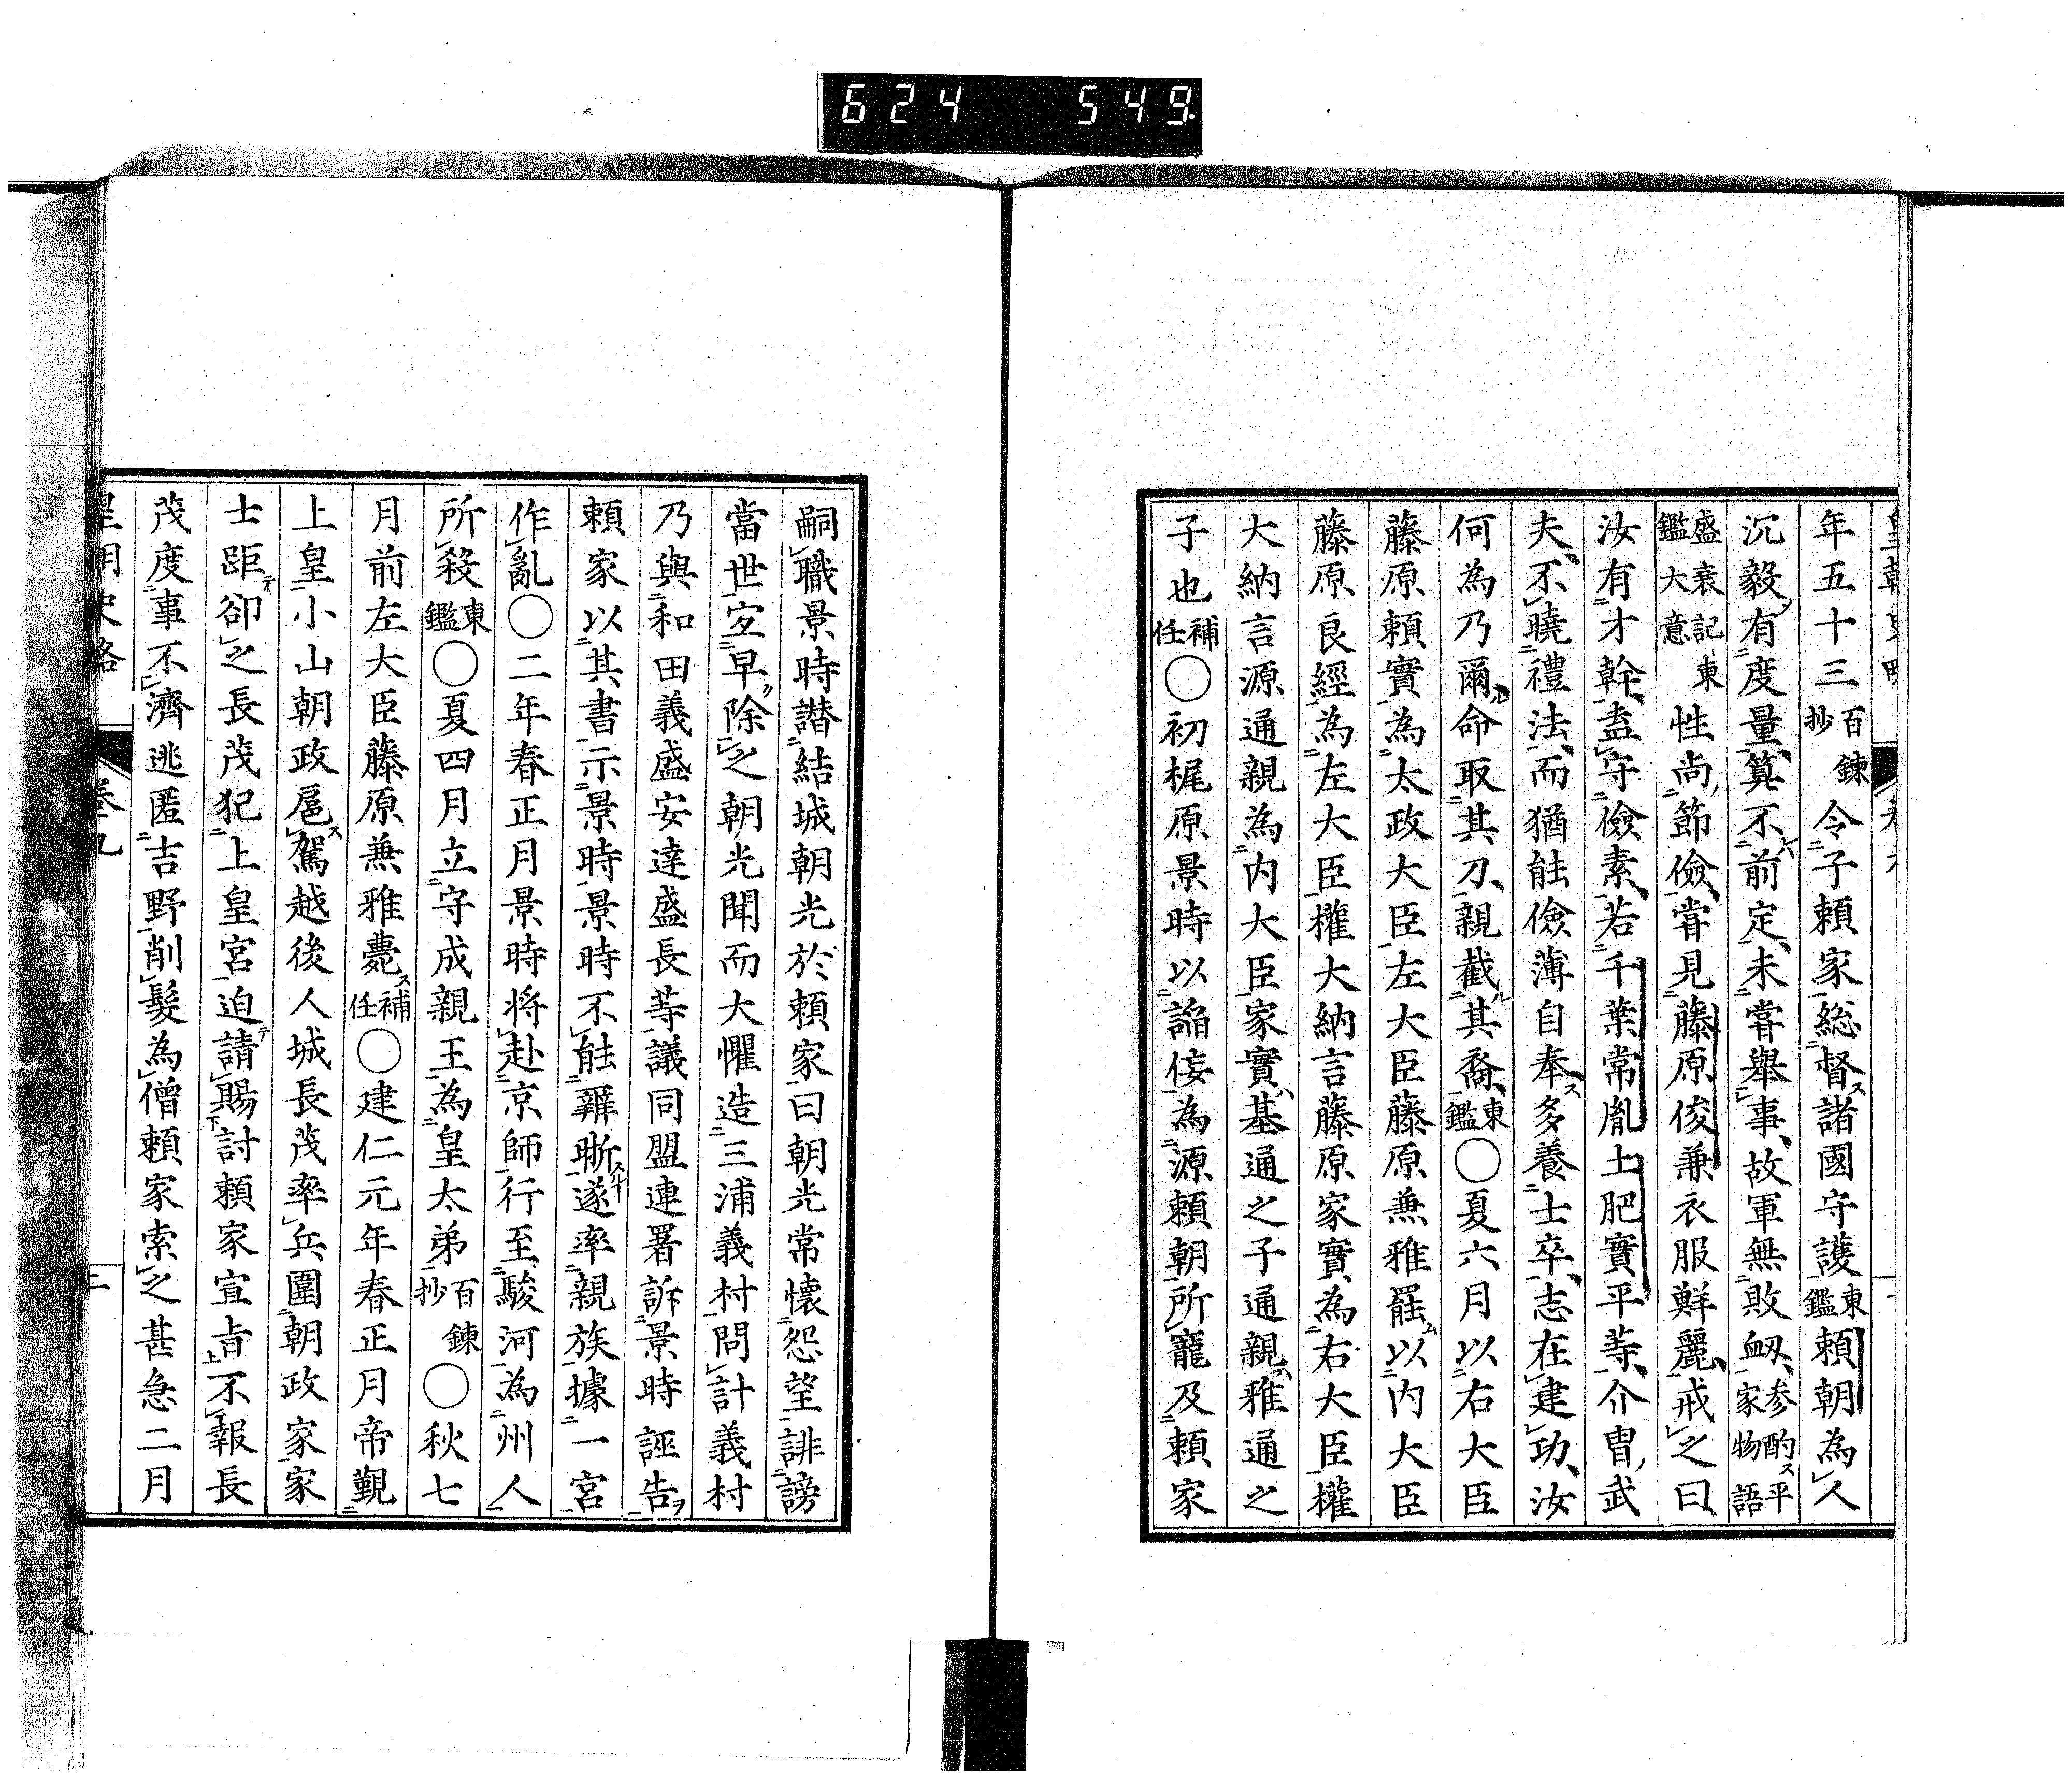 624 549.
年五十三百鍊抄令子賴家總督諸國守護東鑑賴朝為人
沉毅有度量算不前定未嘗舉事故軍無敗衂參酌平家物語
盛衰記東鑑大意性尚節儉嘗見藤原俊兼衣服鮮麗戒之曰
汝有才幹盍守儉素若千葉常胤土肥實平等介冑武
夫不曉禮法而猶能儉薄自奉多養士卒志在建功汝
何為乃爾命取其刀親截其裔東鑑〇夏六月以右大臣
藤原賴實為太政大臣左大臣藤原兼雅罷以內大臣
藤原良經為左大臣權大納言藤原家實為右大臣權
大納言源通親為內大臣家實基通之子通親雅通之
子也補任〇初梶原景時以諂佞為源賴朝所寵及賴家
嗣職景時譖結城朝光於賴家曰朝光常懷怨望誹謗
當世宜早除之朝光聞而大懼造三浦義村問計義村
乃與和田義盛安達盛長等議同盟連署訴景時誣告
賴家以其書示景時景時不能辭晣遂率親族據一宮
作亂〇二年春正月景時將赴京師行至駿河為州人
所殺東鑑〇夏四月立守成親王為皇太弟百鍊抄〇秋七
月前左大臣藤原兼雅薨補任〇建仁元年春正月帝覲
上皇小山朝政扈駕越後人城長茂率兵圍朝政家家
士距卻之長茂犯上皇宮迫請賜討賴家宣旨不報長
茂度事不濟逃匿吉野削髮為僧賴家索之甚急二月
皇朝史略 卷九 二